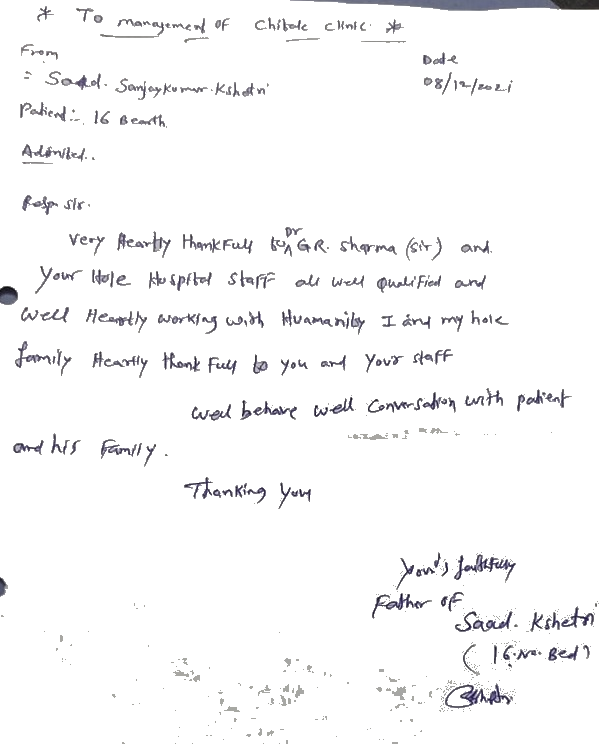 * To management of Chitale clinic. *
From
Date
= Saad. Sanjaykumar. Kshetri
08/12/2021
Patient :- 16 Bearth
Admited..
Resp sir.
Very Heartly thankfull to Dr G.R. Sharma (sir) and
Your Hole Hospital staff all well qualified and
well Heartly working with Huamanity I and my hole
family Heartly thank full to you and Your staff
well behave well conversation with patient
and his family.
Thanking you
Your's faithfully
Father of
Saad. Kshetri
(16. No. Bed)
Kshetri